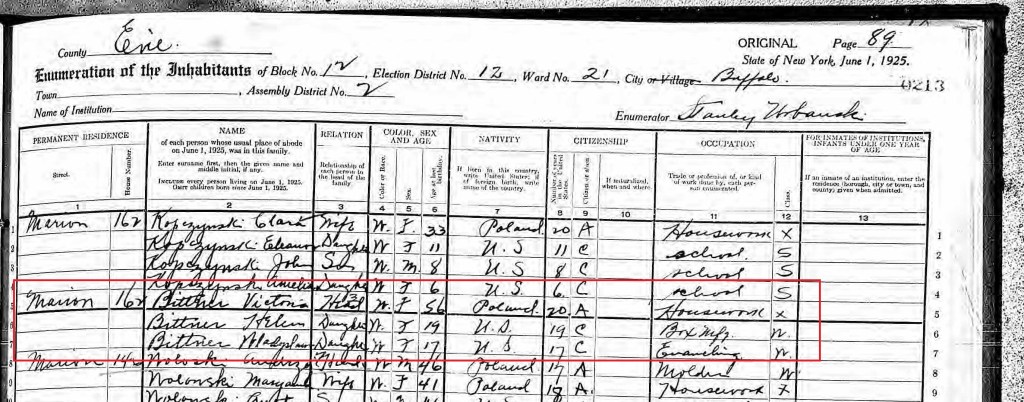 ORIGINAL Page 89.
County Erie.
State of New York, June 1, 1925.
Enumeration of the Inhabitants of Block No. 12, Election District No. 12, Ward No. 21, City or Village Buffalo.
0213
Town , Assembly District No. 2
Name of Institution
Enumerator Stanley Urbanski
PERMANENT RESIDENCE NAME RELATION COLOR, SEX AND AGE NATIVITY CITIZENSHIP OCCUPATION FOR INMATES OF INSTITUTIONS, INFANTS UNDER ONE YEAR OF AGE
Street. House Number.
of each person whose usual place of abode on June 1, 1925, was in this family.
Enter surname first, then the given name and middle initial, if any.
Include every person living on June 1, 1925. Omit children born since June 1, 1925.
Relationship of each person to the head of the family
Color or Race. Sex. Age at last birthday.
If born in this country, write United States; if of foreign birth, write name of the country.
Number of years in the United States. Citizen or alien. If naturalized, when and where.
Trade or profession of, or kind of work done by, each person enumerated. Class.
If an inmate of an institution, enter the residence (borough, city or town, and county) given when admitted.
1 2 3 4 5 6 7 8 9 10 11 12 13
Marion 162 Kopczynski Clara Wife W. F. 33 Poland 20 A Housework X 1
2 Kopczynski Eleanor Daughter W F 11 U. S 11 C school. S 2
3 Kopczynski John Son W. M. 8 U. S 8 C school S 3
Kopczynski Daughter W F 6 U. S 6. C school S 4
Marion 162 Bittner Victoria Head W. F 56 Poland. 20. A Housework X 5
Bittner Helen Daughter W. F 19 U. S. 19 C Box Mfg. W. 6
Bittner Daughter W. F 17 U. S. 17 C W. 7
Marion W M 46 Poland 17 A Molder W 8
Wolonski Wife W. F 41 Poland A. Housework X 9